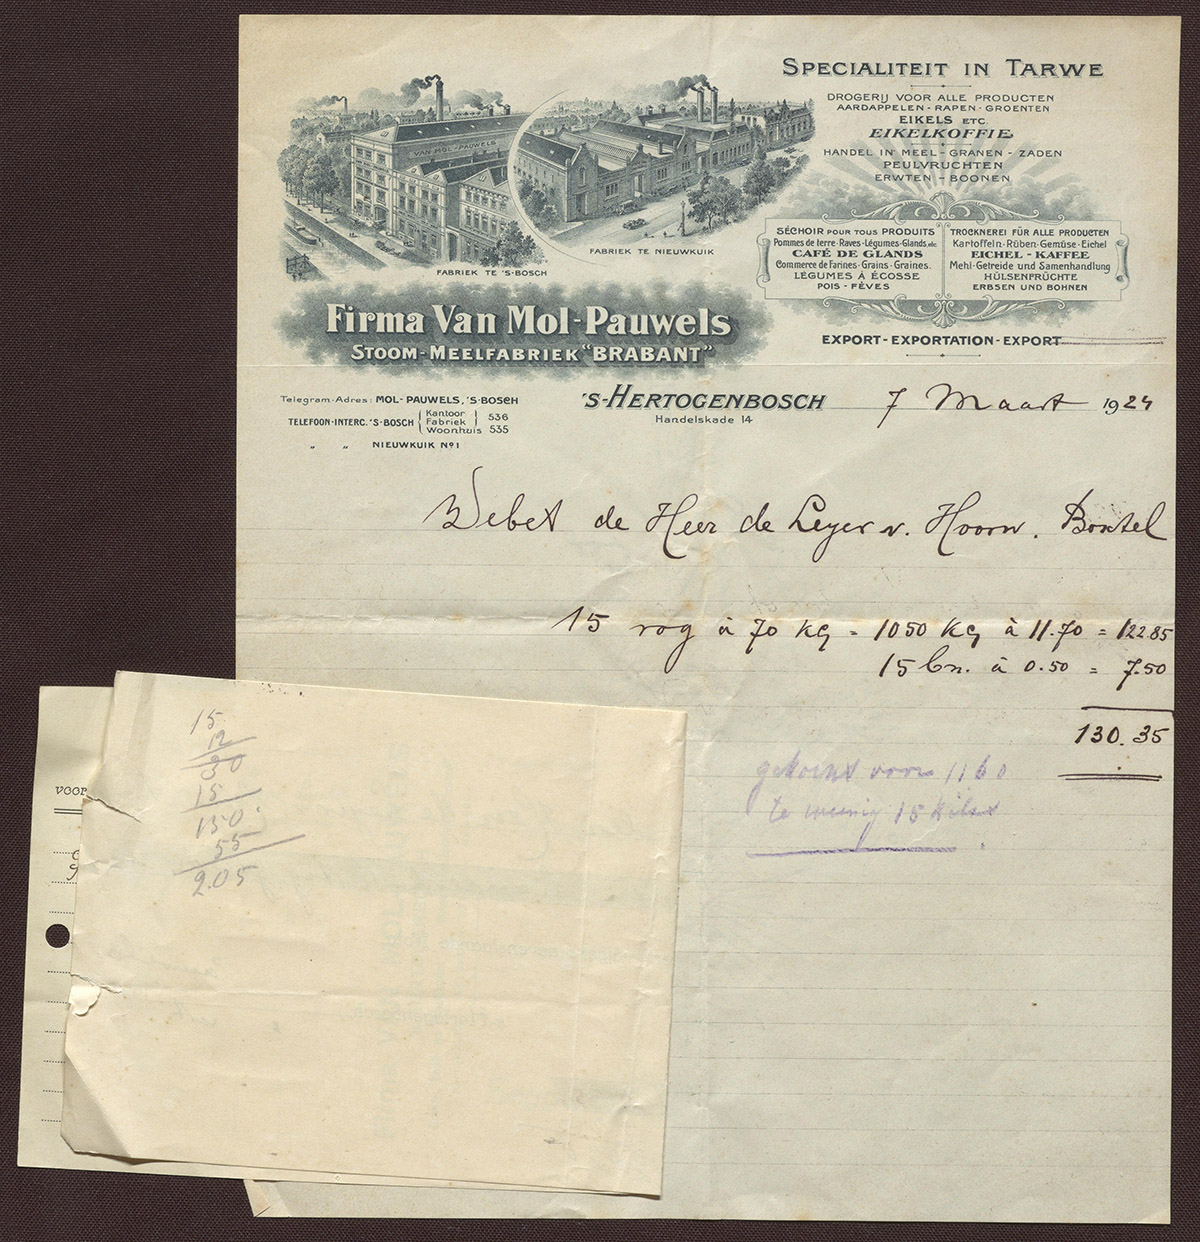 SPECIALITEIT IN TARWE
DROGERIJ VOOR ALLE PRODUCTEN
AARDAPPELEN - RAPEN - GROENTEN
EIKELS ETC.
EIKELKOFFIE
HANDEL IN MEEL - GRANEN - ZADEN
PEULVRUCHTEN
ERWTEN - BOONEN
VAN MOL-PAUWELS
FABRIEK TE 'S-BOSCH
FABRIEK TE NIEUWKUIK
SÉCHOIR POUR TOUS PRODUITS
Pommes de terre - Raves - Légumes - Glands etc
CAFÉ DE GLANDS
Commerce de Farines - Grains - Graines.
LÉGUMES À ÉCOSSE
POIS - FÈVES
TROCKNEREI FÜR ALLE PRODUCTEN
Kartoffeln - Rüben - Gemüse - Eichel
EICHEL - KAFFEE
Mehl - Getreide und Samenhandlung
HÜLSENFRÜCHTE
ERBSEN UND BOHNEN
EXPORT - EXPORTATION - EXPORT
Firma Van Mol-Pauwels
STOOM-MEELFABRIEK "BRABANT"
Telegram-Adres: MOL-PAUWELS, 'S-BOSCH
TELEFOON-INTERC. 'S-BOSCH Kantoor Fabriek 536
Woonhuis 535
„ „ NIEUWKUIK No 1
'S-HERTOGENBOSCH 7 Maart 1924
Handelskade 14
Debet de Heer de Leyer v. Hoorn. Boxtel
15 rog à 70 kg = 1050 kg à 11.70 = 122.85
15 bn. à 0.50 = 7.50
130.35
gekocht voor 1160
te weinig 15 kilo
15
12
30
15
150
55
2.05
VOOR